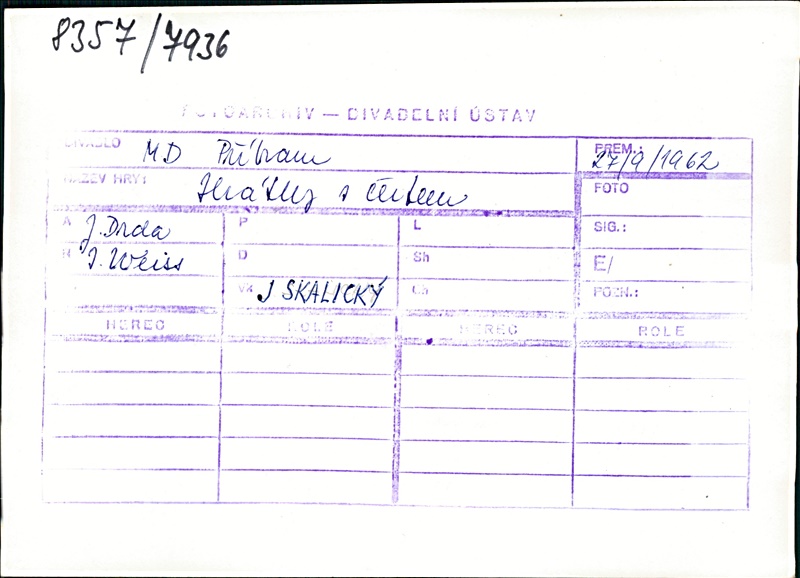 8357/7936
FOTOARCHIV — DIVADELNÍ ÚSTAV
DIVADLO MD Příbram PREM.: 27/9/1962
NÁZEV HRY: Hrátky s čertem FOTO
A J. Drda P L SIG.:
R J. Weiss D Sh E/
Vk J SKALICKÝ Ch POZN.:
HEREC ROLE HEREC ROLE